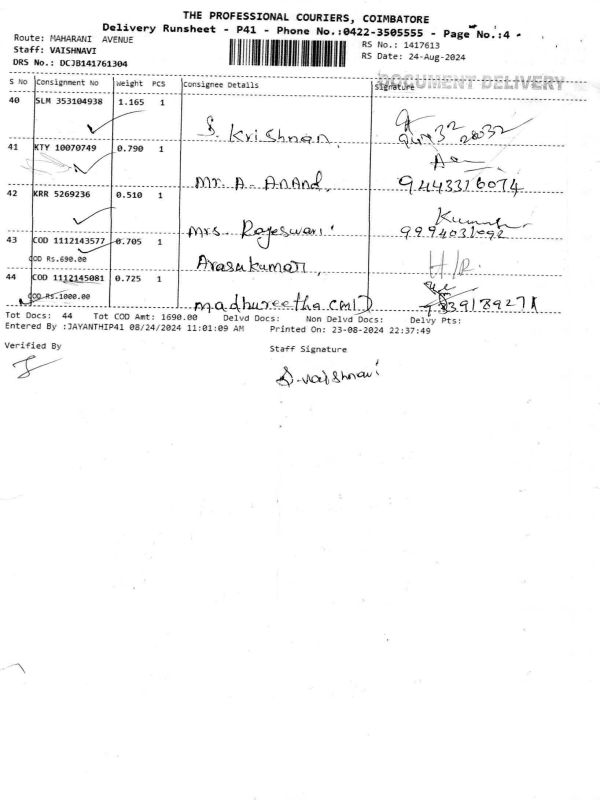 THE PROFESSIONAL COURIERS, COIMBATORE
Delivery Runsheet - P41 - Phone No.:0422-3505555 - Page No.:4 -
Route: MAHARANI AVENUE
RS No.: 1417613
Staff: VAISHNAVI
RS Date: 24-Aug-2024
DRS No.: DCJB141761304
DOCUMENT DELIVERY
S No Consignment No Weight PCS Consignee Details Signature
40 SLM 353104938 1.165 1
S. Krishnan
41 KTY 10070749 0.790 1
Mr. A. Anand. 9443316074
42 KRR 5269236 0.510 1
Mrs. Rajeswari
43 COD 1112143577 0.705 1
COD Rs.690.00
Arasukumari, H/R.
44 COD 1112145081 0.725 1
COD Rs.1000.00
Madhureetha.
Tot Docs: 44 Tot COD Amt: 1690.00 Delvd Docs: Non Delvd Docs: Delvy Pts:
Entered By :JAYANTHIP41 08/24/2024 11:01:09 AM Printed On: 23-08-2024 22:37:49
Verified By
Staff Signature
S. Vaishnavi